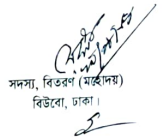 সদস্য, বিতরণ (মহোদয়)
বিউবো, ঢাকা।